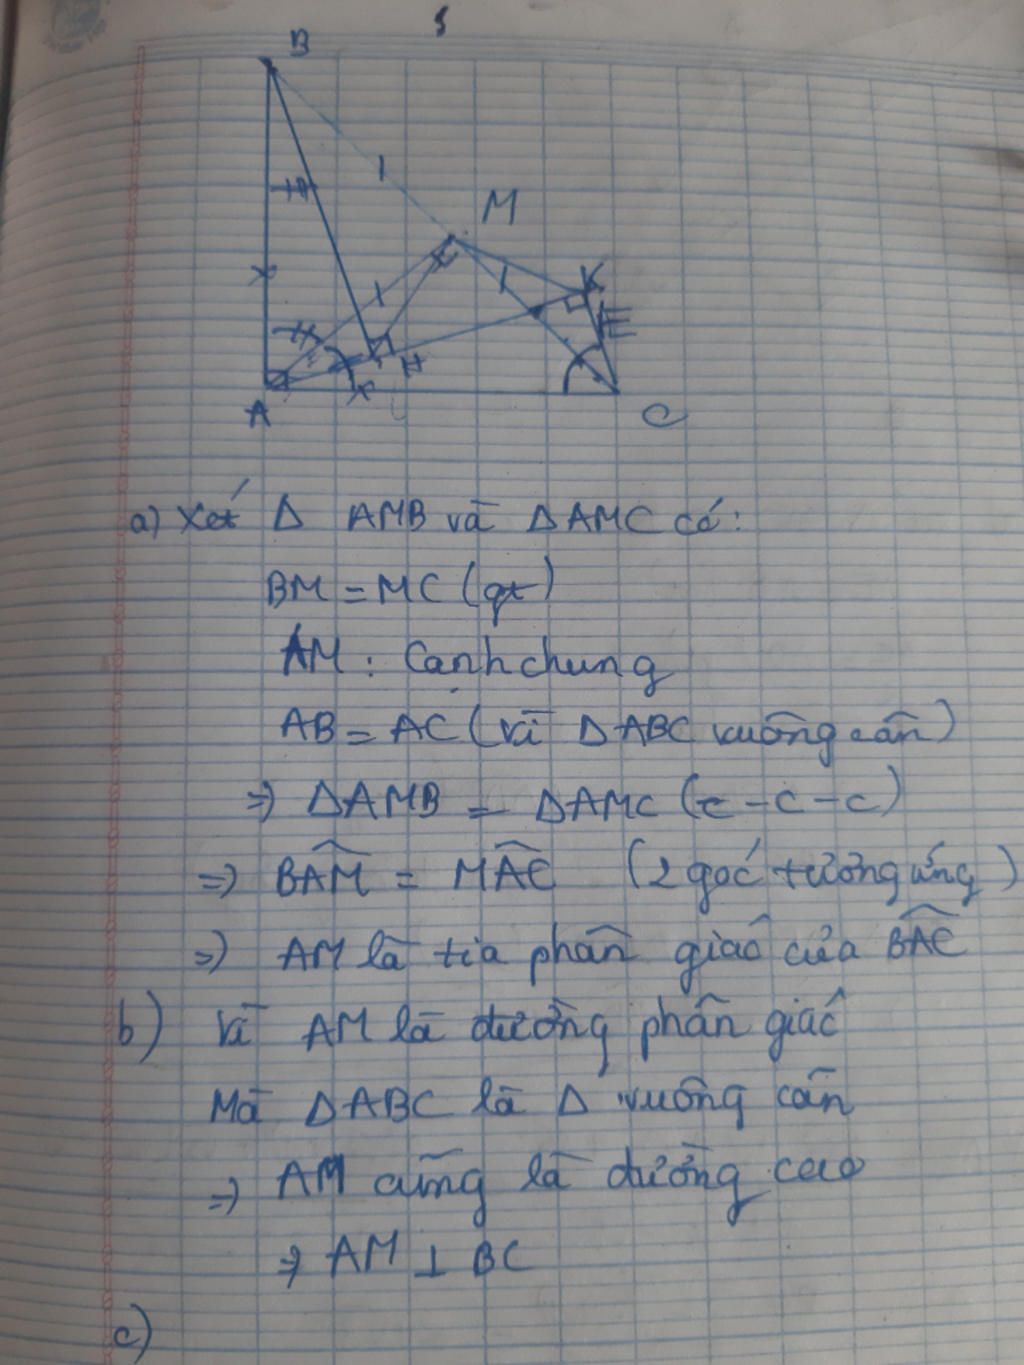 B
M
K
E
H
A
C
a) Xét Δ AMB và ΔAMC có:
BM = MC (gt)
AM : Cạnh chung
AB = AC (vì ΔABC vuông cân)
=> ΔAMB = ΔAMC (c-c-c)
=> BAM = MAC (2 góc tương ứng)
=> AM là tia phân giác của BAC
b) Vì AM là đường phân giác
Mà ΔABC là Δ vuông cân
=> AM cũng là đường cao
=> AM ⊥ BC
c)